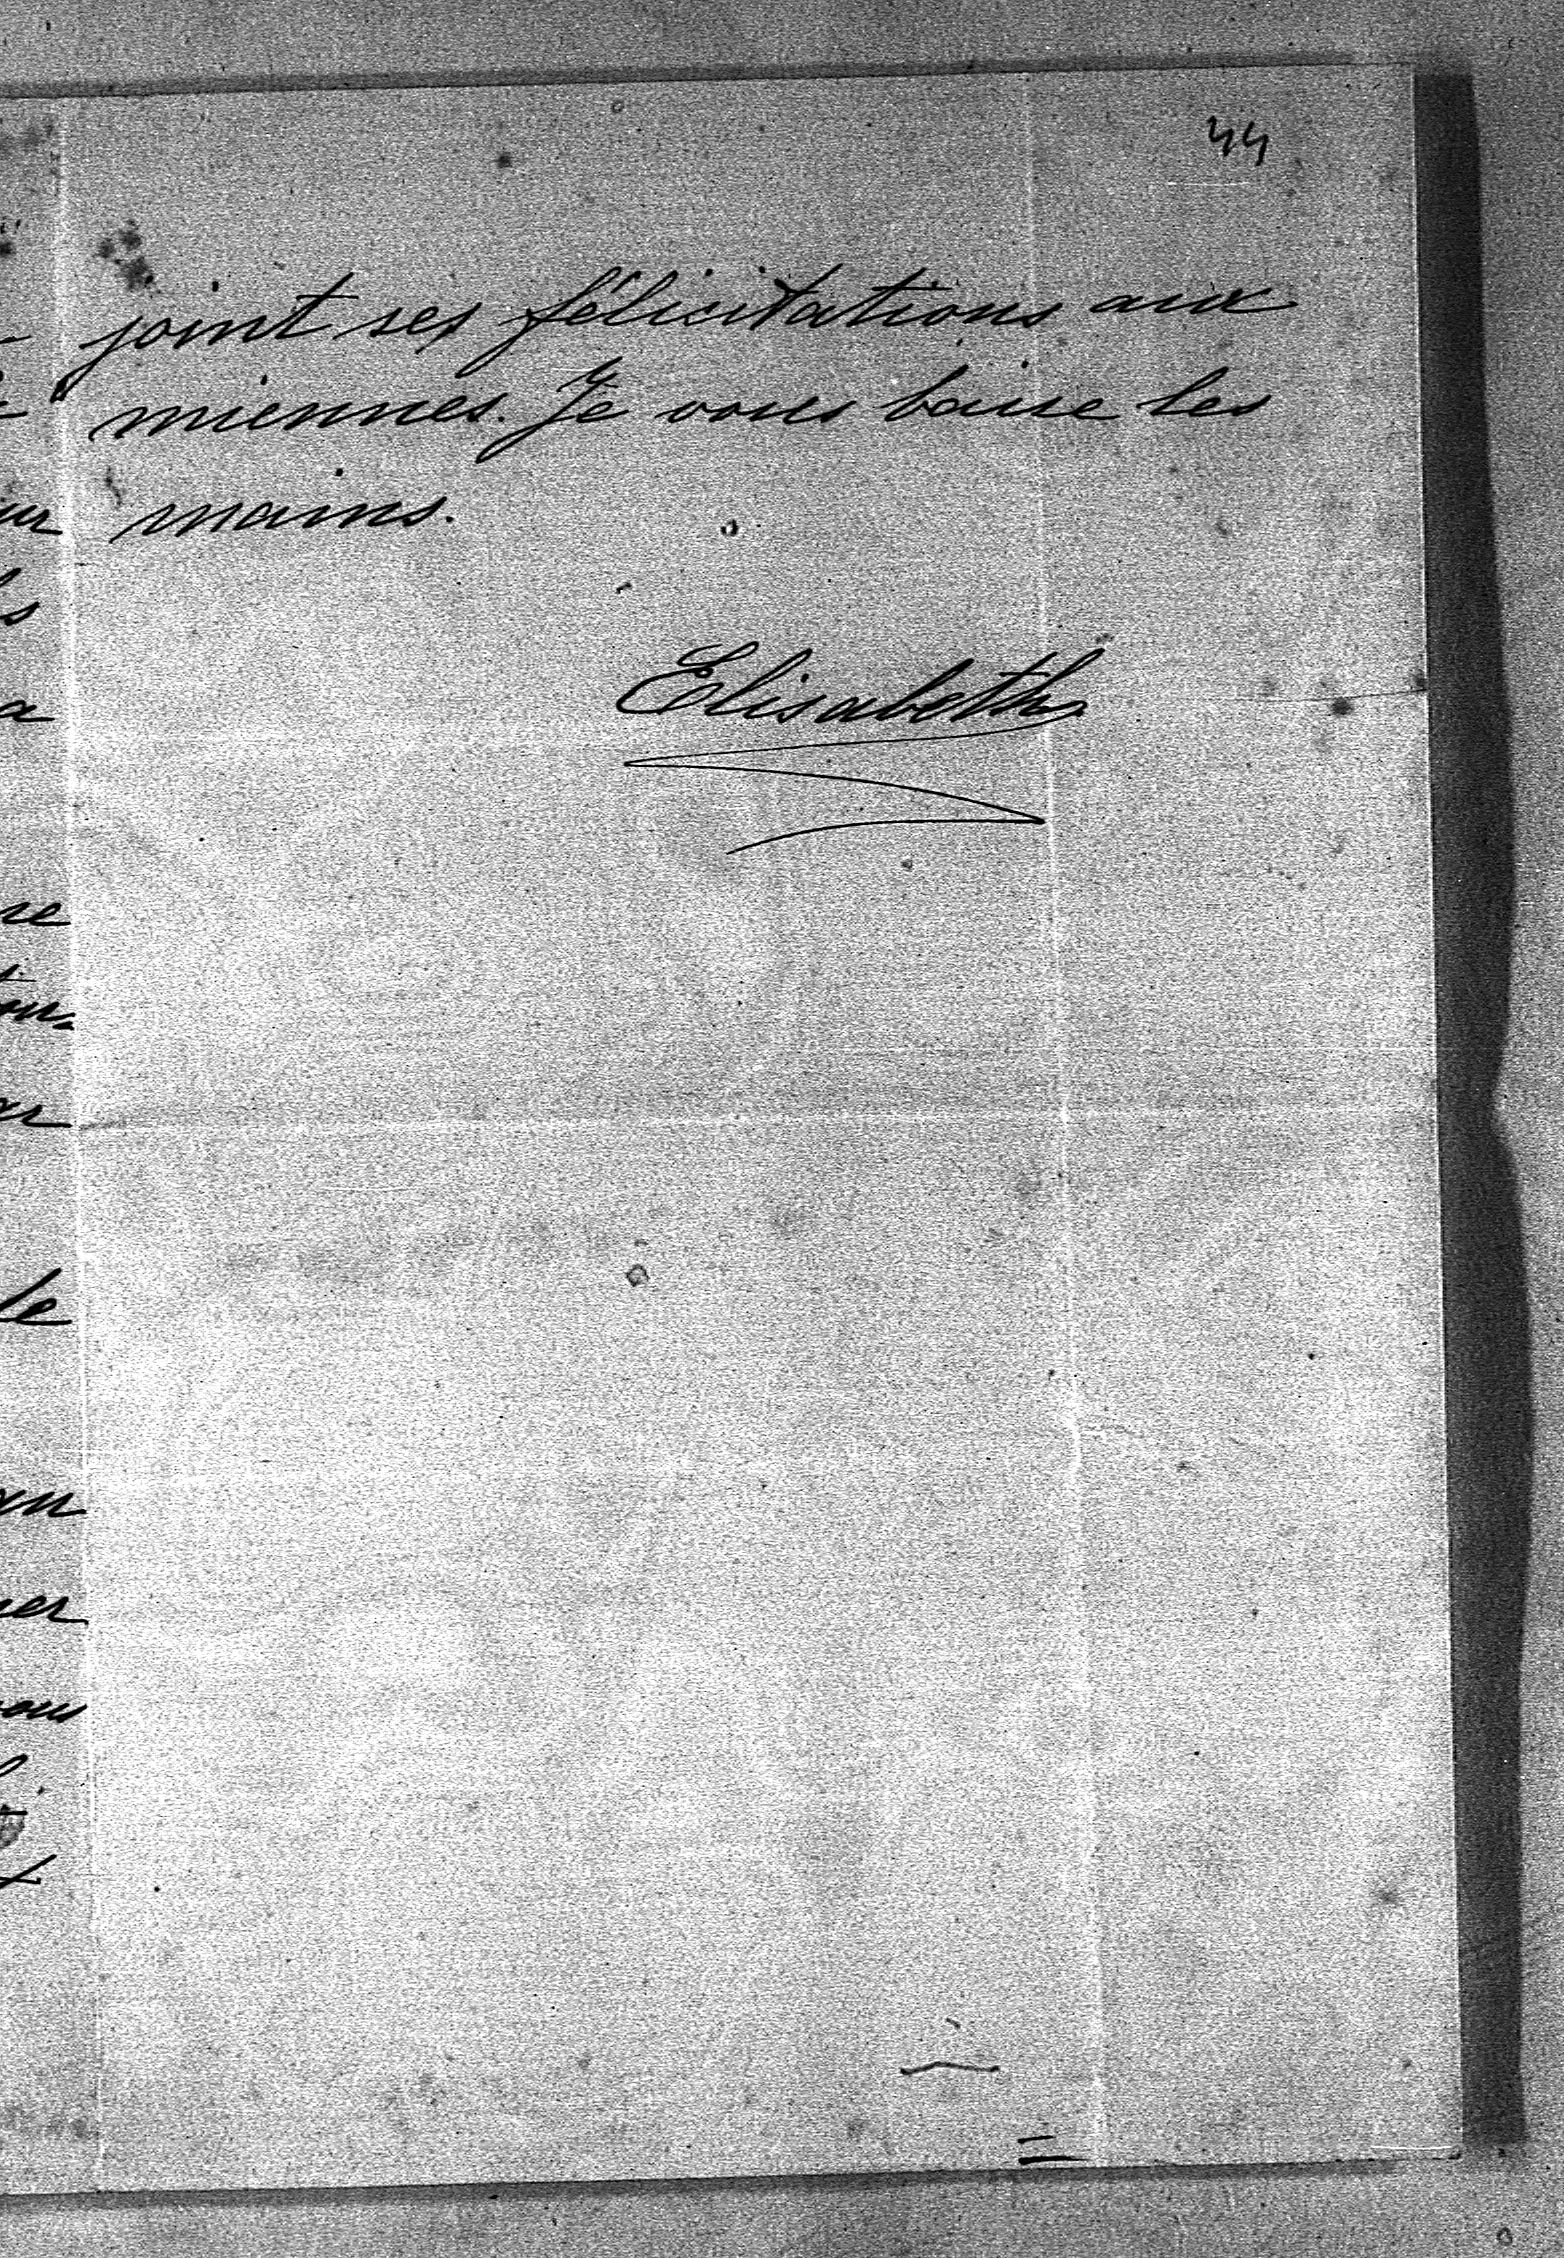 44
joint ses félicitations aux
miennes. Je vous baise les
mains.
Elisabeth